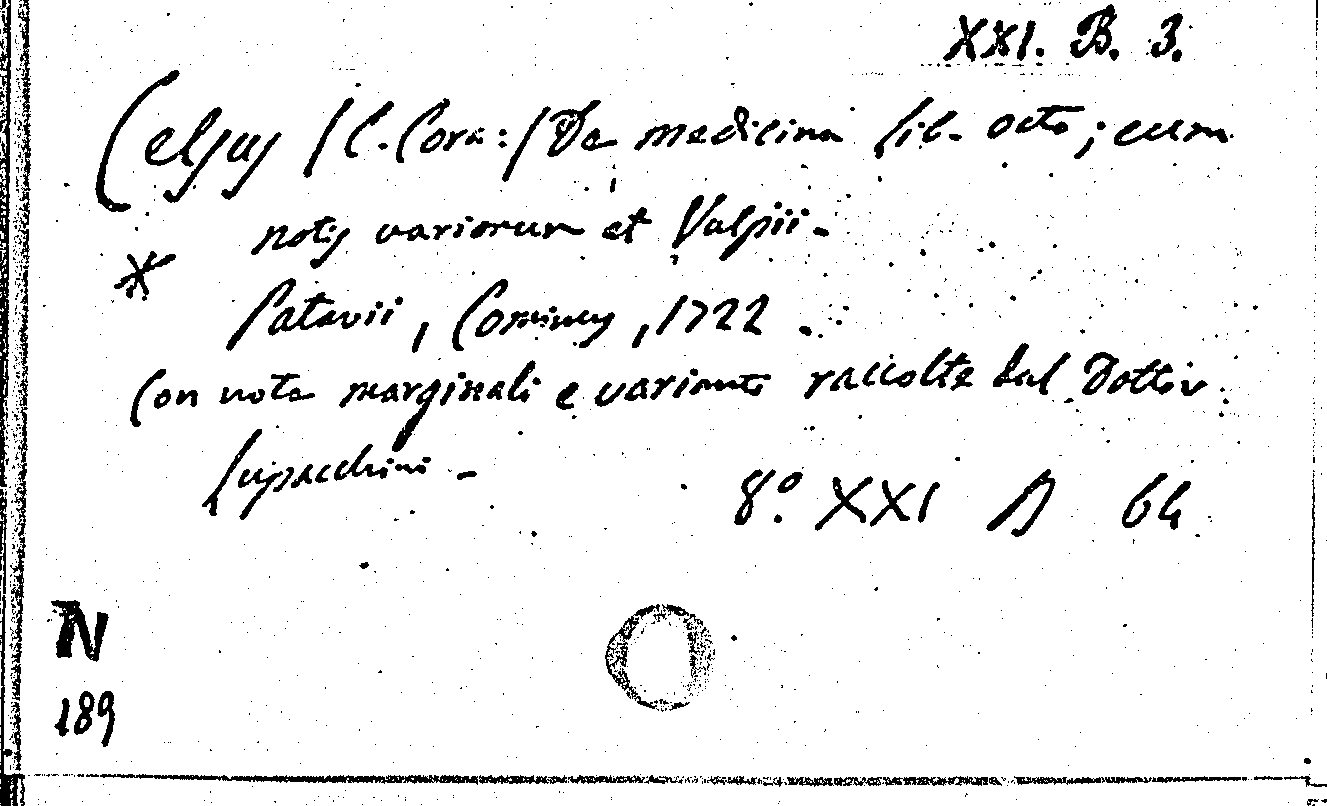 XXI. B. 3.
Celsus /C. Corn:/ De medicina lib. octo; cum
notis variorum et Vulpii.
*
Patavii, Cominus, 1722.
Con note marginali e varianti raccolte dal Dottor
Lupacchini.
8.º XXI A 64
N
189